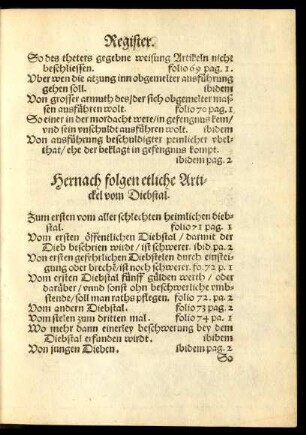 Register.
So des theters gegebne weisung Artikeln nicht
beschliessen. folio 69 pag. 1.
Uber wen die atzung inn obgemelter ausführung
gehen soll. ibidem
Von grosser armuth des/der sich obgemelter mas-
sen ausführen wolt. folio 70 pag. 1.
So einer in der mordacht were/in gefengnus kem/
vnd sein vnschuldt ausführen wolt. ibidem
Von ausführung beschuldigter peinlicher vbel-
that/ehe der beklagt in gefengnus kompt.
ibidem pag. 2
Hernach folgen etliche Arti-
ckel vom Diebstal.
Zum ersten vom aller schlechten heimlichen dieb-
stal. folio 71 pag. 1
Vom ersten öffentlichen Diebstal/darmit der
Dieb beschrien wirdt/ist schwerer. ibid. pa. 2
Von ersten gefehrlichen Diebstelen durch einstei-
gung oder brechē/ist noch schwerer. fo. 72 p. 1
Vom ersten Diebstal fünff gülden werth/oder
darüber/vnnd sonst ohn beschwerliche vmb-
stende/soll man raths pflegen. folio 72. pa. 2
Vom andern Diebstal. folio 73 pag. 2
Vom stelen zum dritten mal. folio 74 pa. 1
Wo mehr dann einerley beschwerung bey dem
Diebstal erfanden wirdt. ibidem
Von jungen Dieben. ibidem pag. 2
So